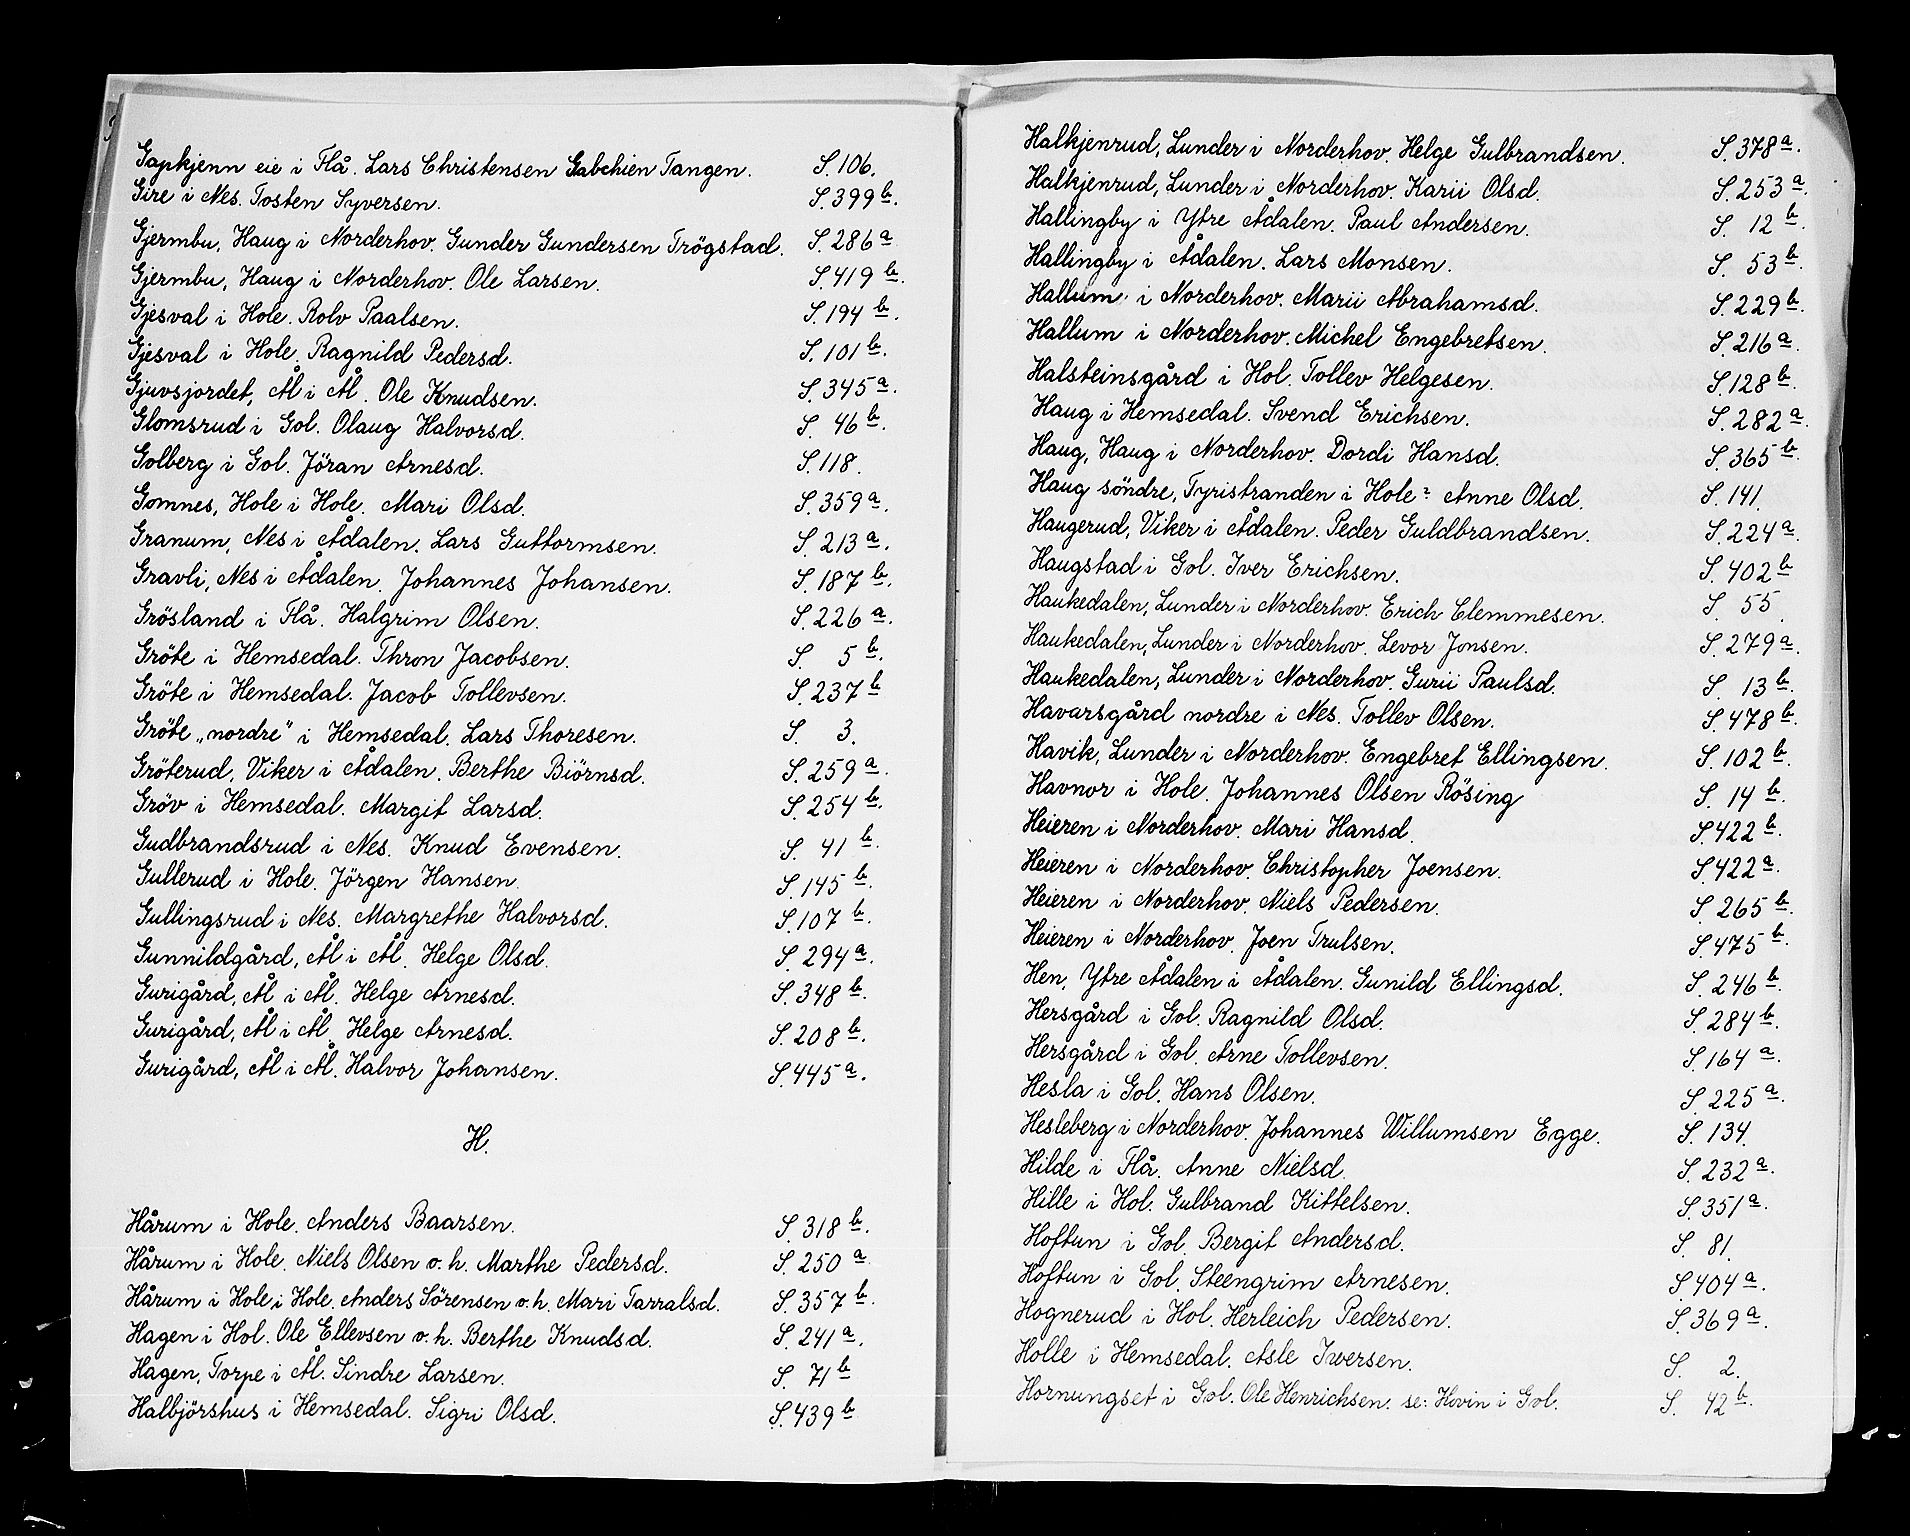 Gapkjenn eie i Flå. Lars Christensen Gabchien Tangen. S. 106.
Gire i Nes. Tosten Syversen. S. 399 b.
Gjermbu, Haug i Norderhov. Gunder Gundersen Trögstad. S. 286 a.
Gjermbu, Haug i Norderhov. Ole Larsen. S. 419 b.
Gjesval i Hole. Rolv Paalsen. S. 194 b.
Gjesval i Hole. Ragnild Pedersd. S. 101 b.
Gjuvsjordet, Ål i Ål. Ole Knudsen. S. 345 a.
Glomsrud i Gol. Olaug Halvorsd. S. 46 b.
Golberg i Gol. Jöran Arnesd. S. 118.
Gomnes, Hole i Hole. Mari Olsd. S. 359 a.
Granum, Nes i Ådalen. Lars Guttormsen. S. 213 a.
Gravli, Nes i Ådalen. Johannes Johansen. S. 187 b.
Grösland i Flå. Halgrim Olsen. S. 226 a.
Gröte i Hemsedal. Thron Jacobsen. S. 5 b.
Gröte i Hemsedal. Jacob Tollevsen. S. 237 b
Gröte „nordre" i Hemsedal. Lars Thoresen. S. 3.
Gröterud, Viker i Ådalen. Berthe Biörnsd. S. 259 a.
Gröv i Hemsedal. Margit Larsd. S. 254 b.
Gudbrandsrud i Nes. Knud Evensen. S. 41 b.
Gullerud i Hole. Jörgen Hansen. S. 145 b.
Gullingsrud i Nes. Margrethe Halvorsd. S. 107 b.
Gunnildgård, Ål i Ål. Helge Olsd. S. 294 a.
Gurigård, Ål i Ål. Helge Arnesd. S. 348 b.
Gurigård, Ål i Ål. Helge Arnesd. S. 208 b.
Gurigård, Ål i Ål. Halvor Johansen. S. 445 a.
H.
Hårum i Hole. Anders Baarsen. S. 318 b.
Hårum i Hole. Niels Olsen o. h. Marthe Pedersd. S. 250 a.
Hårum i Hole i Hole. Anders Sörensen o. h. Mari Tarralsd. S. 357 b.
Hagen i Hol. Ole Ellevsen o. h. Berthe Knudsd. S. 241 a.
Hagen, Torpe i Ål. Sindre Larsen. S. 71 b
Halbjörshus i Hemsedal. Sigri Olsd. S. 439 b
Halkjenrud, Lunder i Norderhov. Helge Gulbrandsen. S. 378 a.
Halkjenrud, Lunder i Norderhov. Karii Olsd. S. 253 a.
Hallingby i Ytre Ådalen. Paul Andersen. S. 12 b.
Hallingby i Ådalen. Lars Monsen. S. 53 b.
Hallum i Norderhov. Marii Abrahamsd. S. 229 b.
Hallum i Norderhov. Michel Engebretsen. S. 216 a.
Halsteinsgård i Hol. Tollev Helgesen. S. 128 b.
Haug i Hemsedal. Svend Erichsen. S. 282 a.
Haug, Haug i Norderhov. Dordi Hansd. S. 365 b.
Haug söndre, Tyristranden i Hole? Anne Olsd. S. 141.
Haugerud, Viker i Ådalen. Peder Guldbrandsen. S. 224 a.
Haugstad i Gol. Iver Erichsen. S. 402 b
Haukedalen, Lunder i Norderhov. Erich Clemmesen. S. 55.
Haukedalen, Lunder i Norderhov. Levor Jonsen. S. 279 a.
Haukedalen, Lunder i Norderhov. Gurii Paulsd. S. 13 b.
Havarsgård nordre i Nes. Tollev Olsen. S. 478 b.
Havik, Lunder i Norderhov. Engebret Ellingsen. S. 102 b.
Havnor i Hole. Johannes Olsen Rösing S. 14 b.
Heieren i Norderhov. Mari Hansd. S. 422 b.
Heieren i Norderhov. Christopher Joensen. S. 422 a.
Heieren i Norderhov. Niels Pedersen. S. 265 b.
Heieren i Norderhov. Joen Trulsen. S. 475 b.
Hen, Ytre Ådalen i Ådalen. Gunild Ellingsd. S. 246 b.
Hersgård i Gol. Ragnild Olsd. S. 284 b.
Hersgård i Gol. Arne Tollevsen. S. 164 a.
Hesla i Gol. Hans Olsen. S. 225 a.
Hesleberg i Norderhov. Johannes Willumsen Egge. S. 134.
Hilde i Flå. Anne Nielsd. S. 232 a.
Hille i Hol. Gulbrand Kittelsen. S. 351 a.
Hoftun i Gol. Bergit Andersd. S. 81.
Hoftun i Gol. Steengrim Arnesen. S 404 a.
Hognerud i Hol. Herleich Pedersen. S. 369 a.
Holle i Hemsedal. Asle Iversen. S. 2.
Hornungset i Gol. Ole Henrichsen. se: Hovin i Gol. S. 42 b.